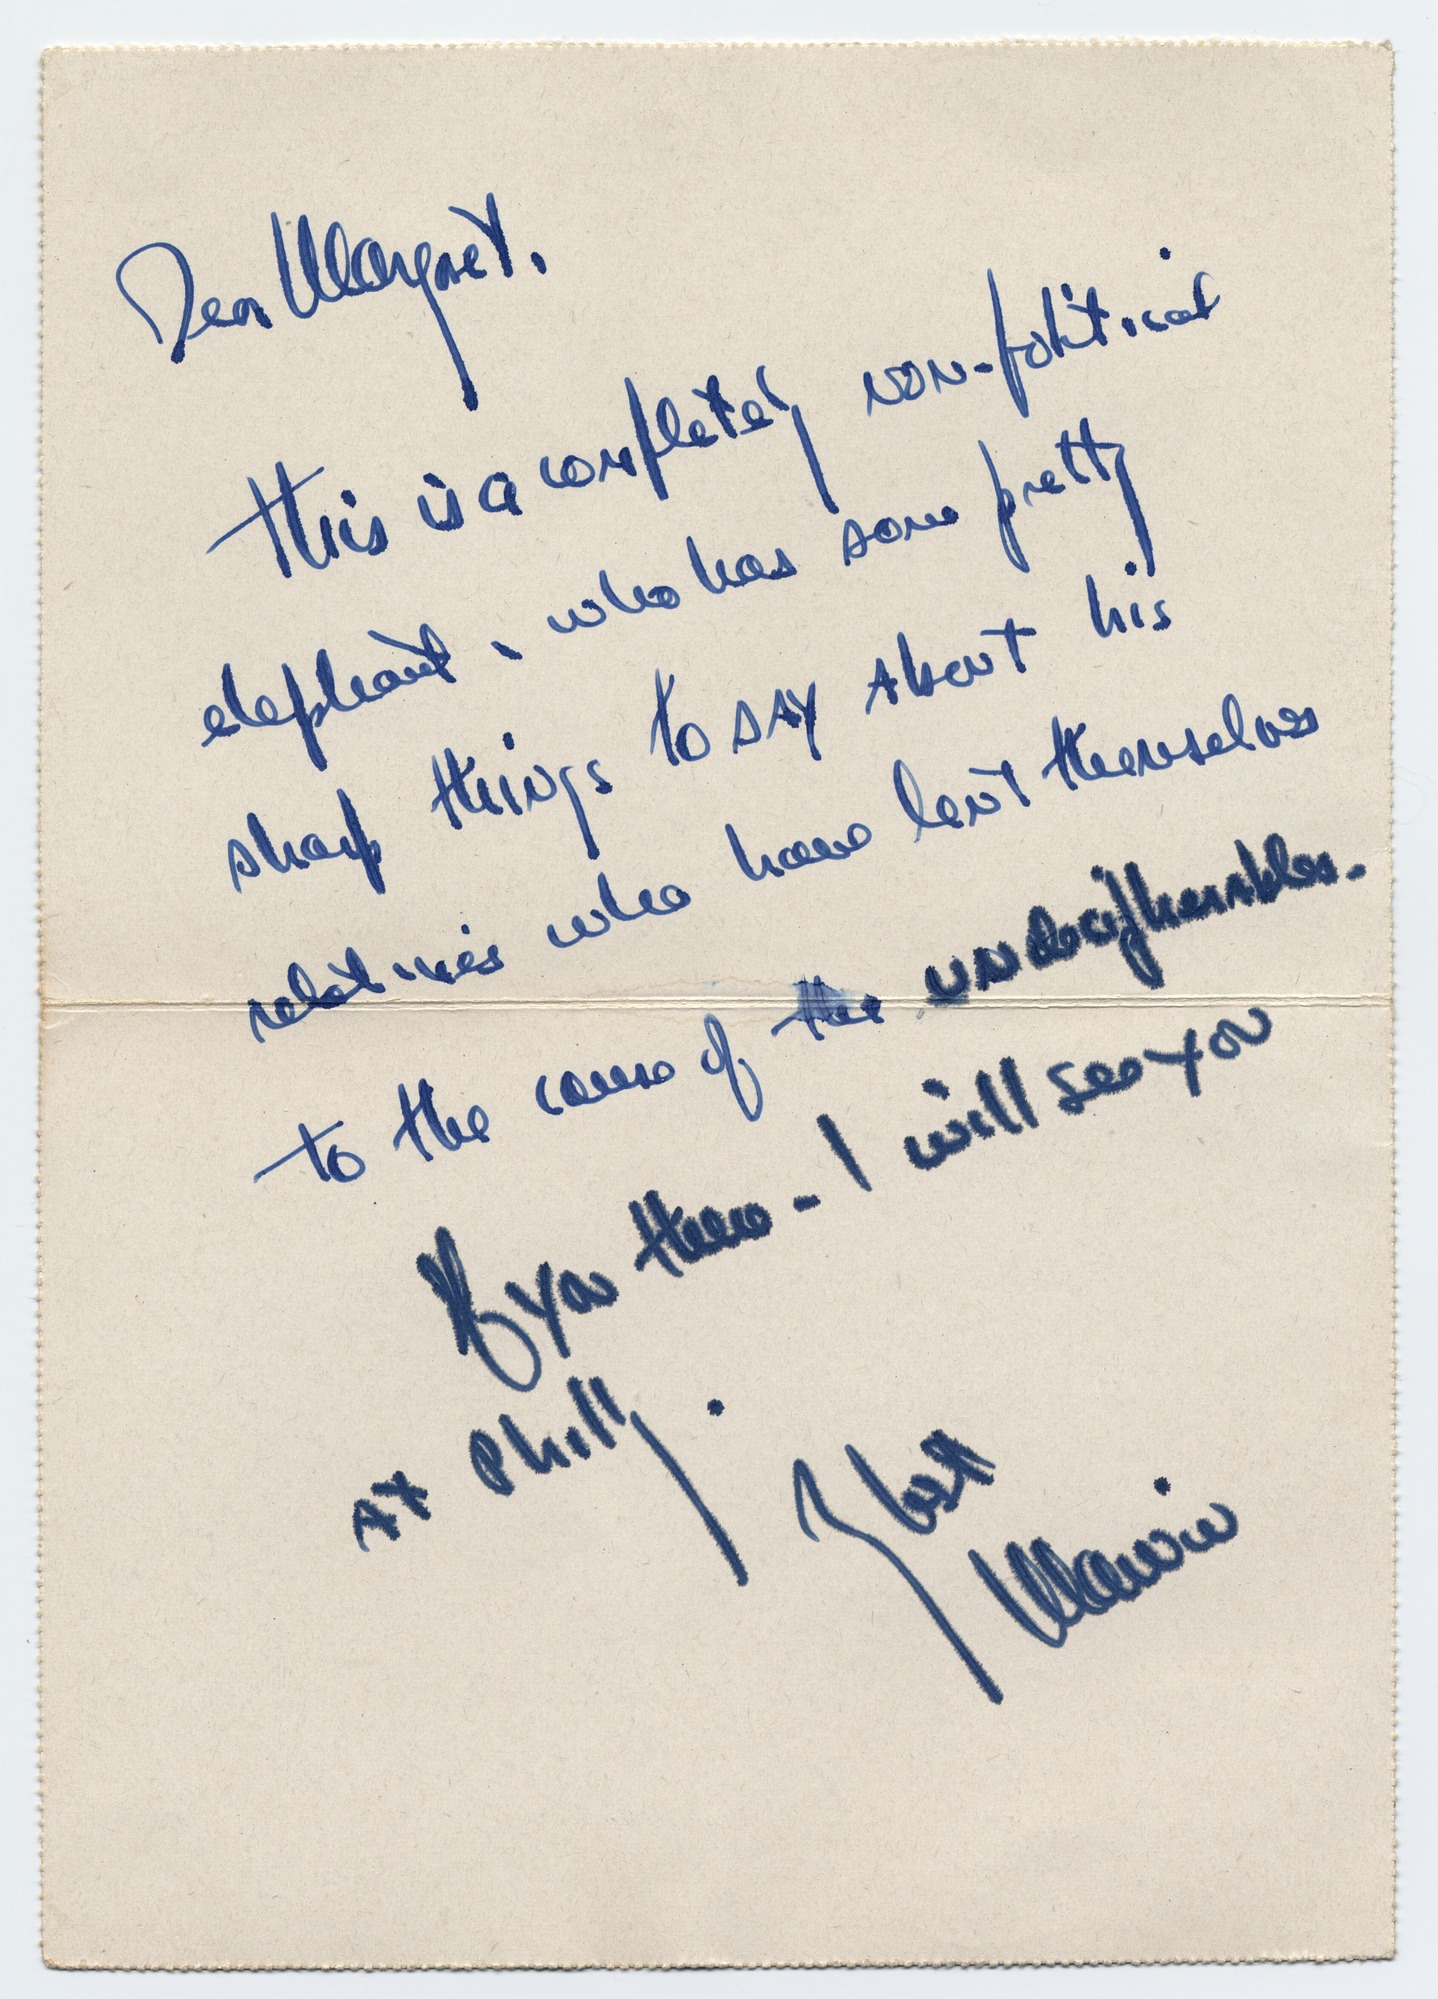 Dear Margret.
This is a completely non-political
elephant, who has some pretty
sharp things to say about his
relatives who have lent themselves
to the cause of the undecipherables.
If you there - I will see you
at Philly.
best
Marvin